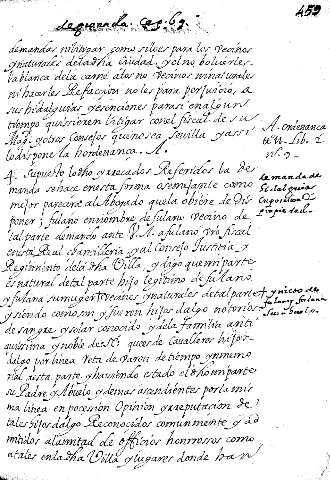 de granada
459
demandas ni litigar como si les para los vecinos
y naturales de la dha Ciudad, y el no bolverles
la blanca de la carne a los no vecinos ni naturales
ni hacerles Refacion no les para perjuicio, a
sus hidalguias y esenciones para si en algun
tiempo quisieren litigar con el fiscal de su
Mag. y otros Consejos que no sea Sevilla y asi
lo dispone la hordenanza. A.
A. ordenanza
Lib. 2
4. Supuesto lo dho y arecados Referidos la de
manda se hace en esta forma o semejante como
mejor pareciere al Abogado que la obiere de dis
poner; fulano en nombre de fulano vecino de
tal parte demando ante V. A. a fulano vro fiscal
en esta Real Chancilleria y al Consejo Justicia, y
Regimiento de la dha Villa, y digo que mi parte
es natural de tal parte hijo legitimo de fulano
y fulana su muger vecinos y naturales de tal parte
y siendo como mi p. fueron hijos dalgo notorios
de sangre y solar conocido, y de la familia anti
quissima y noble de
demanda de
hidalguia
en posesion
propiedad
y nieto de
fulano y fulana
dalgo por linea Reta de Varon de tiempo ynmemo
rial a esta parte y haviendo estado el dho mi parte
su Padre y Abuelo y demas ascendientes por la mis
ma linea en posesion Opinion y reputacion de
tales hijos dalgo Reconocidos comunmente y ad
mitidos a la mitad de officios honrrosos como
a tales en la dha Villa y lugares donde han